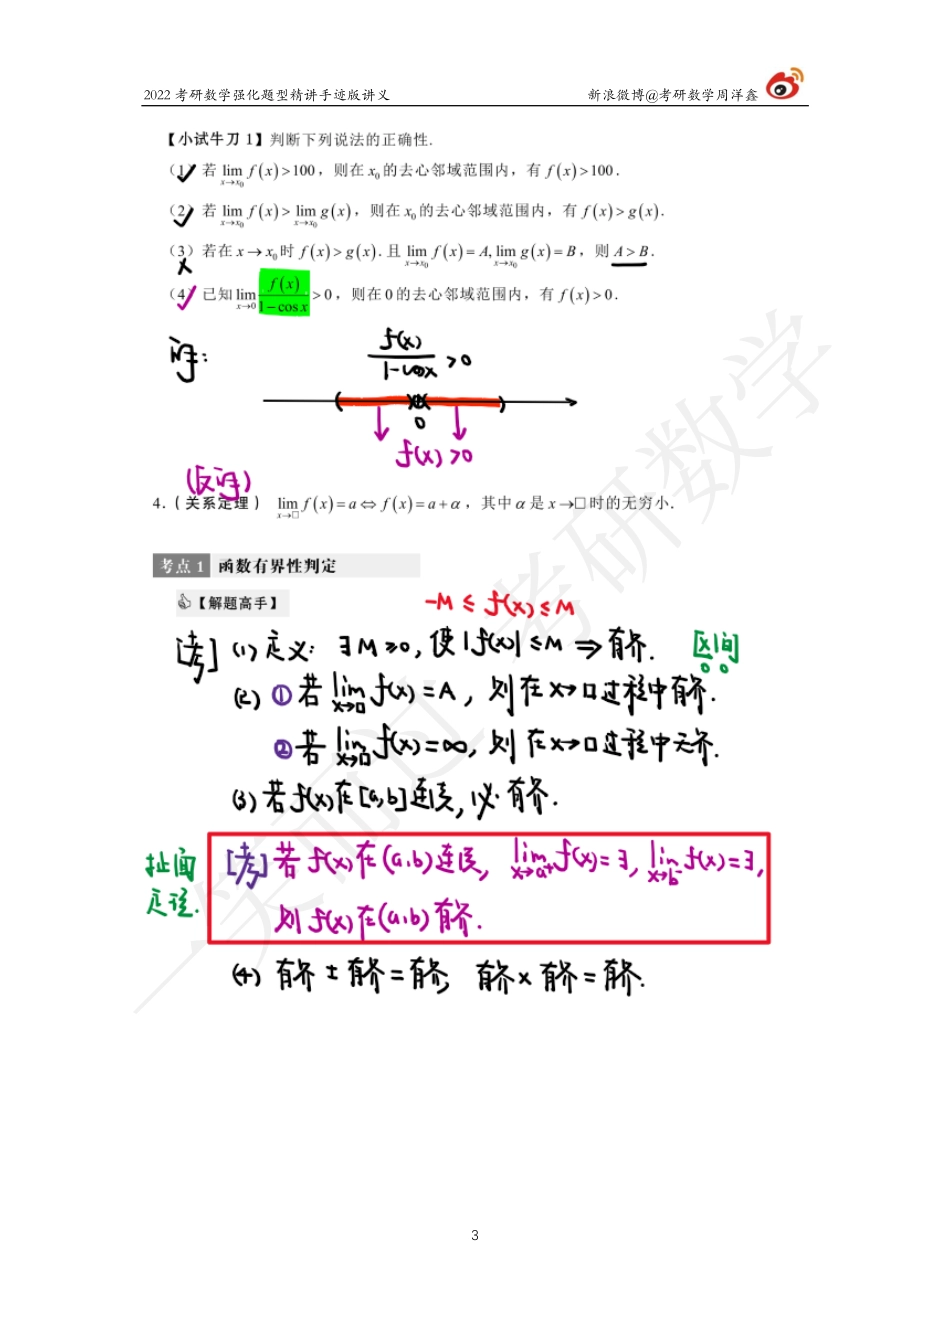 2022 考研数学强化题型精讲手迹版讲义 新浪微博@考研数学周洋鑫
【小试牛刀 1】判断下列说法的正确性.
(1) 若 lim_{x→x₀} f(x)>100，则在 x₀ 的去心邻域范围内，有 f(x)>100.
(2) 若 lim_{x→x₀} f(x)> lim_{x→x₀} g(x)，则在 x₀ 的去心邻域范围内，有 f(x)>g(x).
(3) 若在 x→x₀ 时 f(x)>g(x). 且 lim_{x→x₀} f(x)=A, lim_{x→x₀} g(x)=B，则 A>B.
(4) 已知 lim_{x→0} f(x)/(1−cos x) >0，则在 0 的去心邻域范围内，有 f(x)>0.
f(x)/(1-cosx) >0
0
f(x)>0
4.（关系定理） lim_{x→□} f(x)=a⇔f(x)=a+α，其中 α 是 x→□ 时的无穷小.
考点 1 函数有界性判定
【解题高手】
-M ≤ f(x) ≤ M
[考] (1) 定义: ∃M>0, 使|f(x)|≤M ⇒ 有界. 区间
(2) ①若 lim_{x→□} f(x)=A, 则在x→□过程中有界.
②若 lim_{x→□} f(x)=∞, 则在x→□过程中无界.
(3) 若f(x)在[a,b]连续, 必有界.
[考] 若 f(x)在(a,b)连续, lim_{x→a⁺} f(x)=∃, lim_{x→b⁻} f(x)=∃,
则 f(x)在(a,b)有界.
(4) 有界±有界=有界, 有界×有界=有界.
一笑而过 考研数学
3